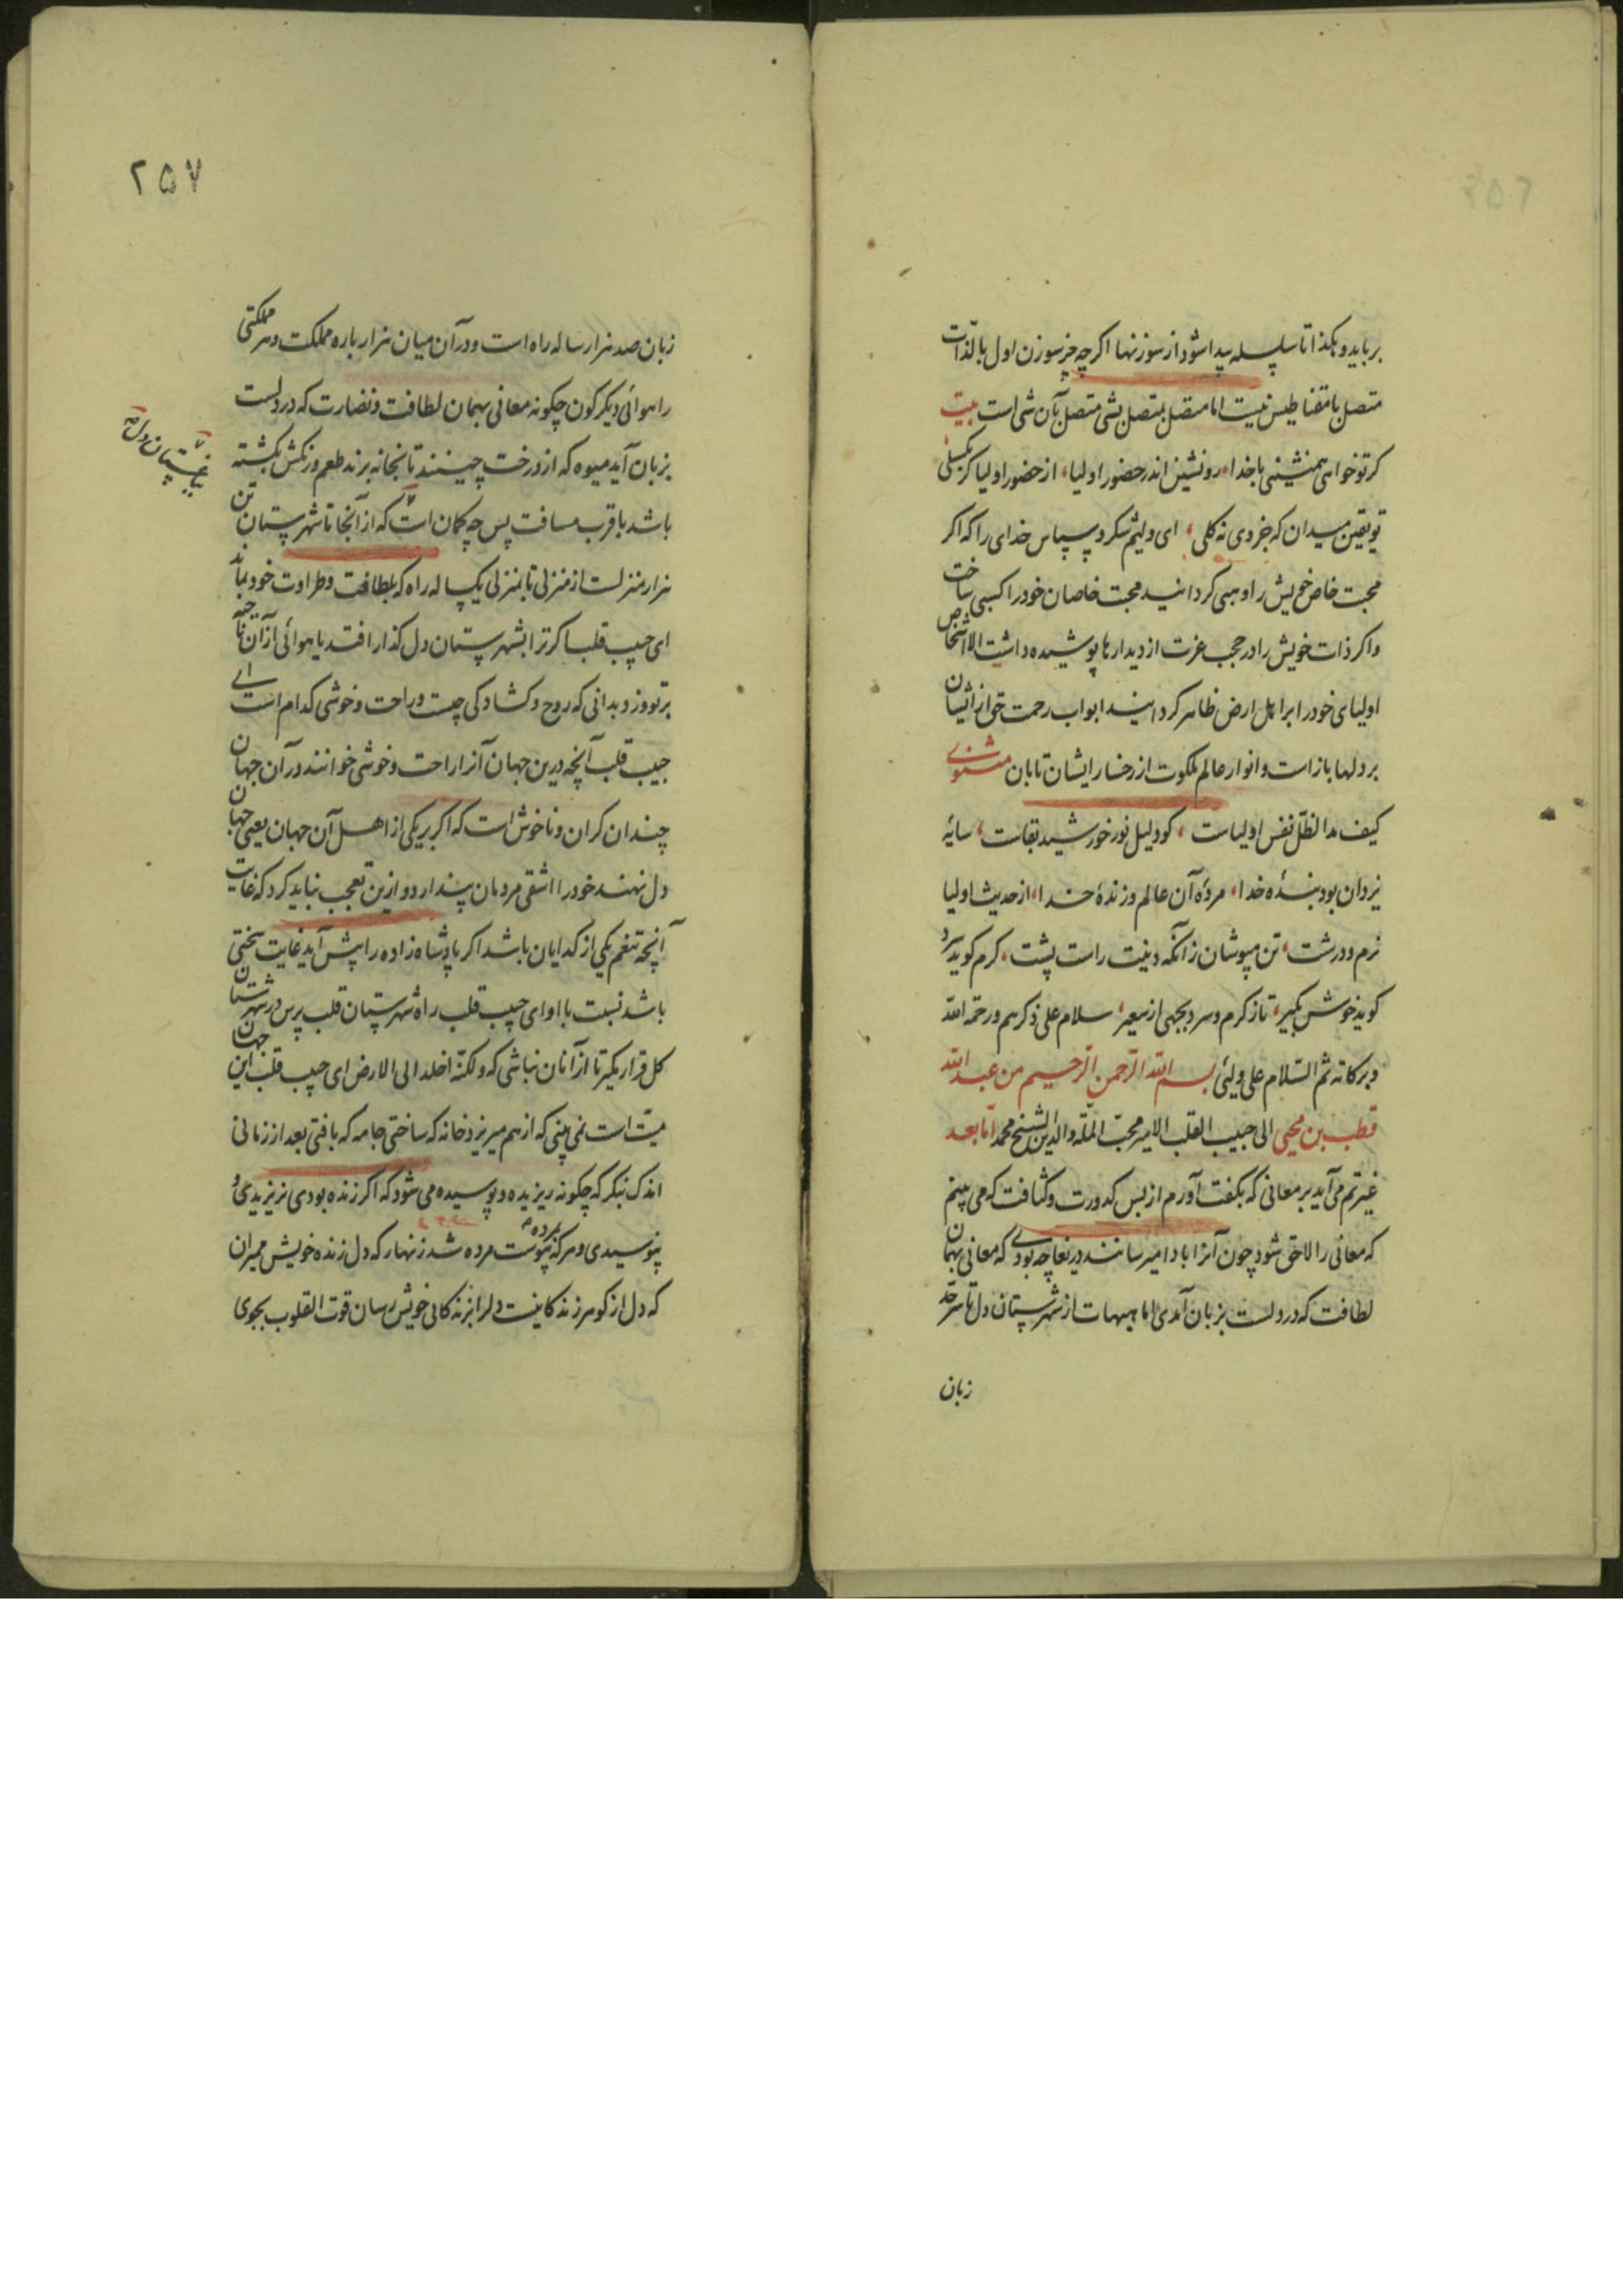 برباید و هکذا تا سلسله پیدا شود از سوزنها اگرچه جز سوزن اول بالذات
متصل با مقناطیس نیست اما متصل بمتصل بشی متصل بآن شی است بیت
کر تو خواهی همنشینی با خدا، رو نشین اندر حضور اولیا، از حضور اولیا کر بکسلی
تو یقین میدان که جزوی نه کلی، ای ولیم شکر و سپاس خدای را که اکر
محبت خاص خویش را وهبی کردانید محبت خاصان خود را کسبی ساخت
واکر ذات خویش را در حجب عزت از دیدارها پوشیده داشت الا اشخاص
اولیای خود را برا هل ارض ظاهر کردانید ابواب رحمت حق از ایشان
بر دلها باز است و انوار عالم ملکوت از رخسار ایشان تابان مثنوی
کیف مد الظل نفس اولیاست، کو دلیل نور خورشید بقاست، سایهٔ
یزدان بود بندهٔ خدا، مردهٔ آن عالم و زندهٔ خدا، از حدیث اولیا
نرم و درشت، تن مپوشان زانکه دینت راست پشت، کرم کوید سرد
کوید خوش بکیر، تا ز کرم و سرد بجهی از سعیر، سلام علی ذکرهم و رحمة الله
و برکاته ثم السّلام علی ولیّی بسم الله الرّحمن الرّحیم من عبد الله
قطب بن محیی الی حبیب القلب الامیر محبّ الملّه والدین الشیخ محمد امّا بعد
غیرتم می آید بر معانی که بکفت آورم از بس کدورت و کثافت که می بینم
که معانی را لاحق شود چون آنرا با دامیرسانند دریغا چه بودی که معانی بهمان
لطافت که در دلست بزبان آمدی اما هیهات از شهرستان دل تا سرحد
زبان
۲۵۷
زبان صد هزار ساله راه است و در آن میان هزار باره مملکت و هر مملکتی
را هوائی دیکر کون چکونه معانی بهمان لطافت و نضارت که در دلست
بزبان آید میوه که از درخت چینند تا بخانه برند طعم و رنکش بکشته
باشد با قرب مسافت پس چه کمان است که از آنجا تا شهرستان تن
هزار منزلست از منزلی تا بمنزلی یکساله راه که بلطافت و طراوت خود بماند
ای حبیب قلب اکر ترا بشهرستان دل کذار افتد یا هوائی از آن ناحیه
بر تو وزد بدانی که روح و کشاد کی چیست و راحت و خوشی کدام است ای
حبیب قلب آنچه درین جهان آنرا راحت و خوشی خوانند در آن جهان
چندان کران و ناخوش است که اکر بر یکی از اهل آن جهان یعنی جهان
دل نهند خود را اشقی مردمان پندارد و ازین تعجب نباید کرد که غایت
آنچه تنعم یکی از کدایان باشد اکر پادشاه زاده را پیش آید غایت سختی
باشد نسبت با او ای حبیب قلب راه شهرستان قلب پرس در شهرستان
کل قرار مکیر تا از آنان نباشی که ولکنّه اخلد الی الارض ای حبیب قلب این جهان
میّت است نمی بینی که از هم میریزد خانه که ساختی جامه که بافتی بعد از زمانی
اندک بنکر که چکونه ریزیده و پوسیده می شود که اکر زنده بودی نریزیدی و
نپوسیدی و هر که بمرده پیوست مرده شد زنهار که دل زنده خویش ممیران
که دل از کوهر زندکانیست دلرا بزندکانی خویش رسان قوت القلوب بجوی